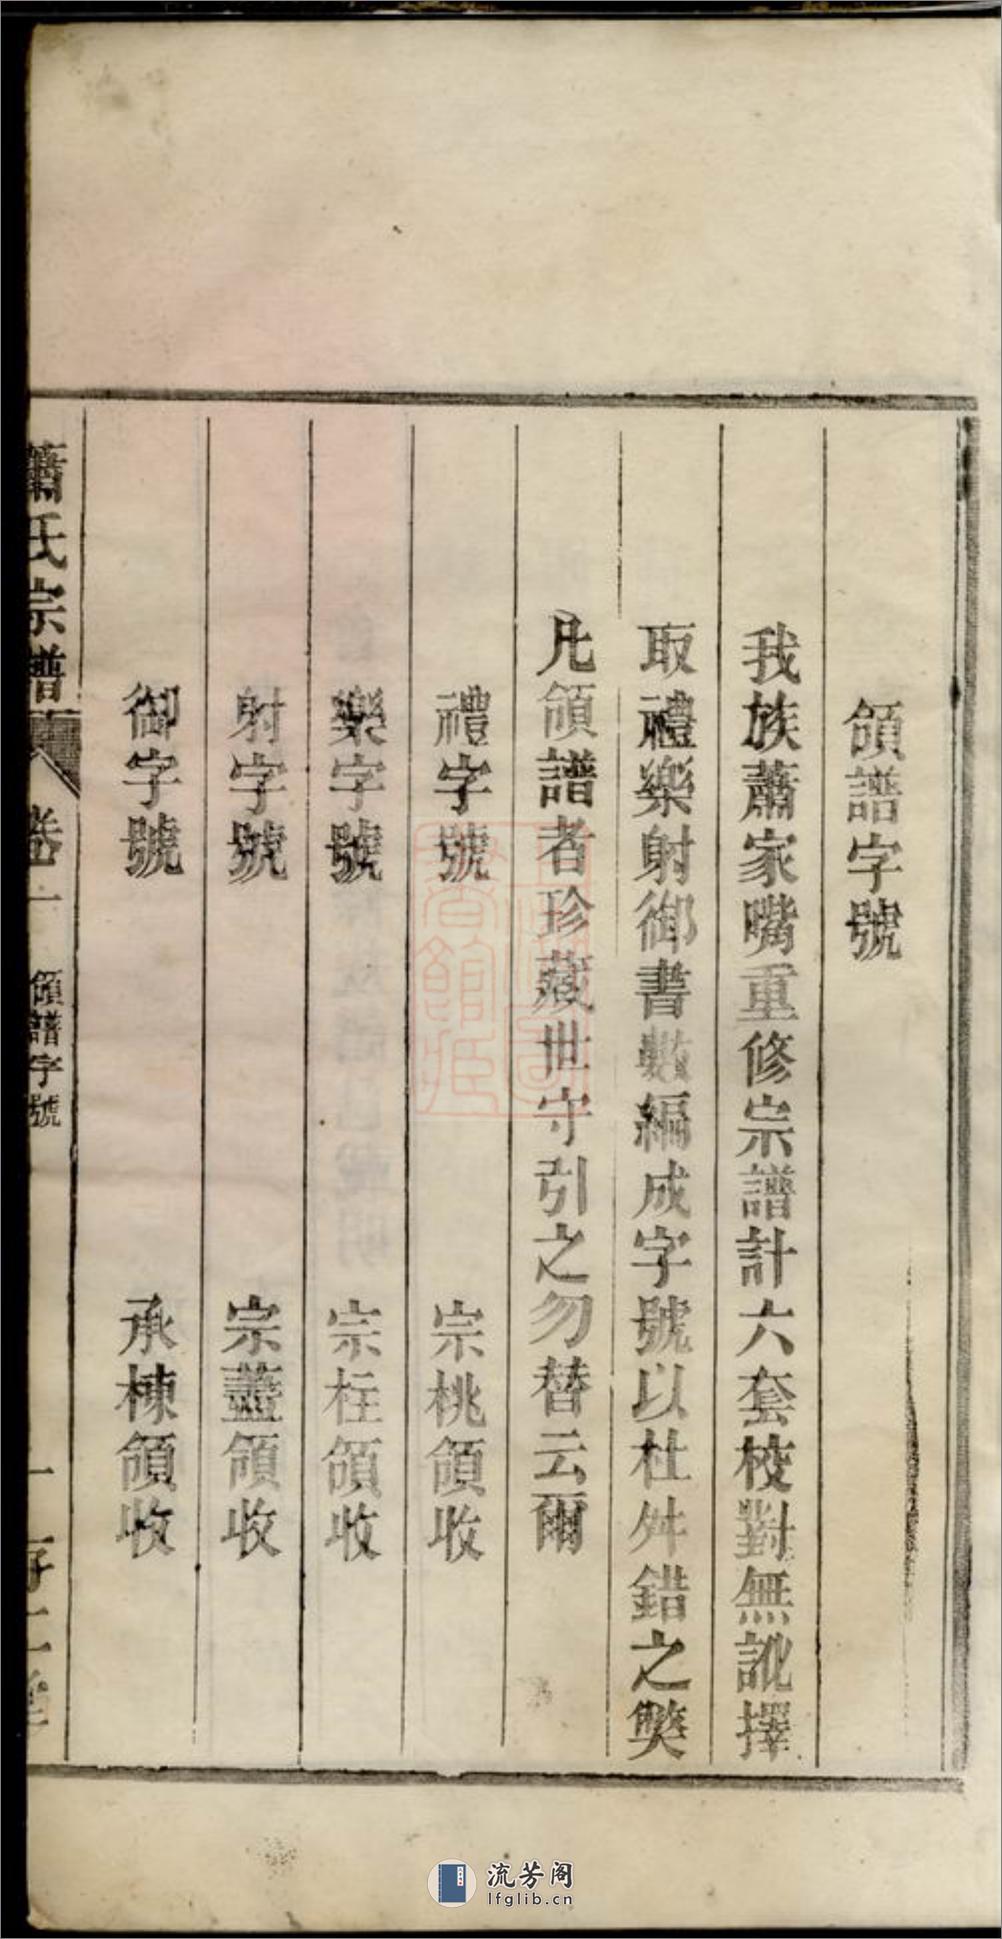 領譜字號
我族蕭家嘴重修宗譜計六套校對無訛擇
取禮樂射御書數編成字號以杜舛錯之獘
凡領譜者珍藏世守引之勿替云爾
禮字號 宗桃領收
樂字號 宗柱領收
射字號 宗藎領收
御字號 承棟領收
蕭氏宗譜 卷一 領譜字號 一
流芳阁
lfglib.cn